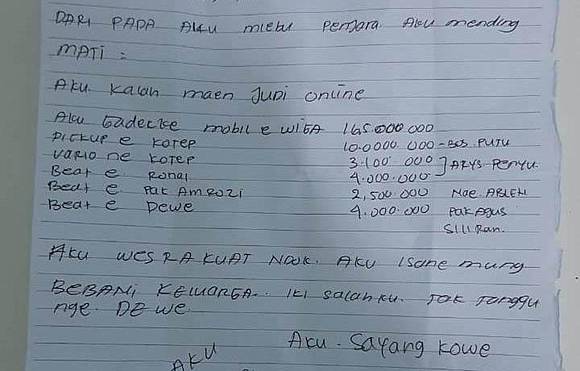 DARI PADA AKU mlebu Penjara Aku mending
MATI :
AKU KALAH maen Judi online
AKU Gadecke mobil e WITA 165.000 000
Pickup e KOTEP 10.0000 000 - BOS PUTU
VARIO ne KOTEP 3.100.000
Beat e Ronal 4.000.000 ] ARYS Penyu.
Beat e PAK AMROZI 2,500.000 Moe ABLEH
Beat e Dewe 4.000.000 PAK Agus
SILIRan.
AKU WES RA KUAT NDOK. AKU ISONE mung
BEBANI KELUARGA. IKI SALAHKU. TAK TANGGU
nge DEWE
AKU. SAYANG KOWE
AKU